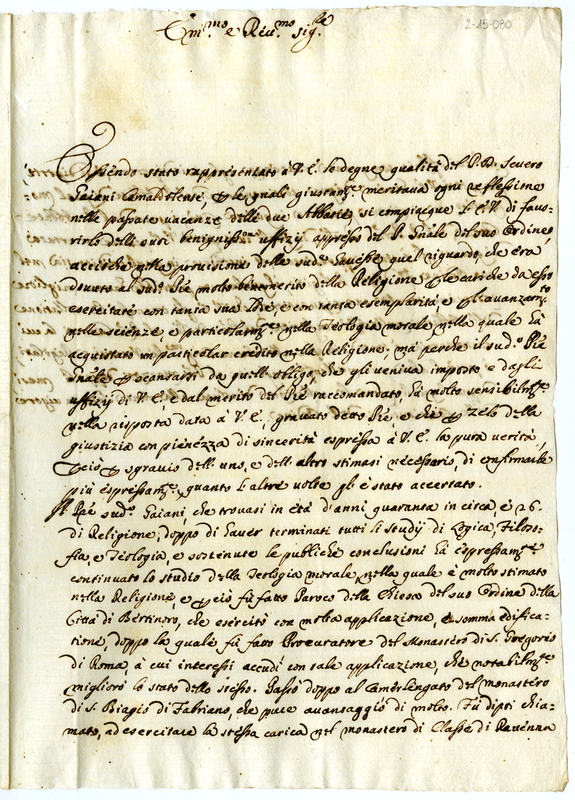 2-15-080
Em.mo e Reu.mo sig.re
Essendo stato rappresentato à V. E. le degne qualità del P. D. Seuero
Gaiani Camaldolense, e le quali giustam.te meritaua ogni reflessione
nelle passate uacanze delle due Abbatie, si compiacque l'E. V. di fauo-
rirlo delli suoi benigniss.mi uffizij appresso del P. Gnãle del suo Ordine,
acciò che nella prouisione delle sud.e hauesse quel riguardo, che era
douuto al sud.o Pre molto benemerito della Religione p le cariche da esso
esercitate con tanta sua lode, e con tanta esemplarità, e p l'auanzam.to
nelle scienze, e particolarm.te nella Teologia morale, nella quale hà
acquistato un particolar credito nella Religione; mà perche il sud.o Pre
Gnãle p scansarsi da quell'obligo, che gli ueniua imposto e dagli
uffizij di V. E., e dal merito del Pre raccomandato, hà molto sensibilm.te
nella risposta data à V. E., grauato detto Pre, e chi p zelo della
giustizia con pienezza di sincerità espressa à V. E. la pura uerità,
p ciò p sgrauio dell'uno, e dell'altro stimasi necessario, di confirmarle
più espressam.te quanto l'altre uolte gli è stato accertato.
Il Pre sud.o Gaiani, che trouasi in età d'anni quaranta in circa, e 26.
di Religione; doppo di hauer terminati tutti li studij di Logica, Filoso-
fia, e Teologia, e sostenute le publiche conclusioni hà espressam.te
continuato lo studio della Teologia morale, nella quale è molto stimato
nella Religione, e p ciò fù fatto Paroco della Chiesa del suo Ordine della
Città di Bertinoro, che esercitò con molta applicazione, e somma edifica-
tione, doppo la quale fù fatto Procuratore del Monastero di S. Gregorio
di Roma, à cui interessi accudì con tale applicazione, che notabilm.te
migliorò lo stato dello stesso. Passò doppo al Camerlengato del monastero
di S. Biagio di Fabriano, che pure auantaggiò di molto. Fù dipoi chia-
mato, ad esercitare la stessa carica nel monastero di Classe di Rauenna